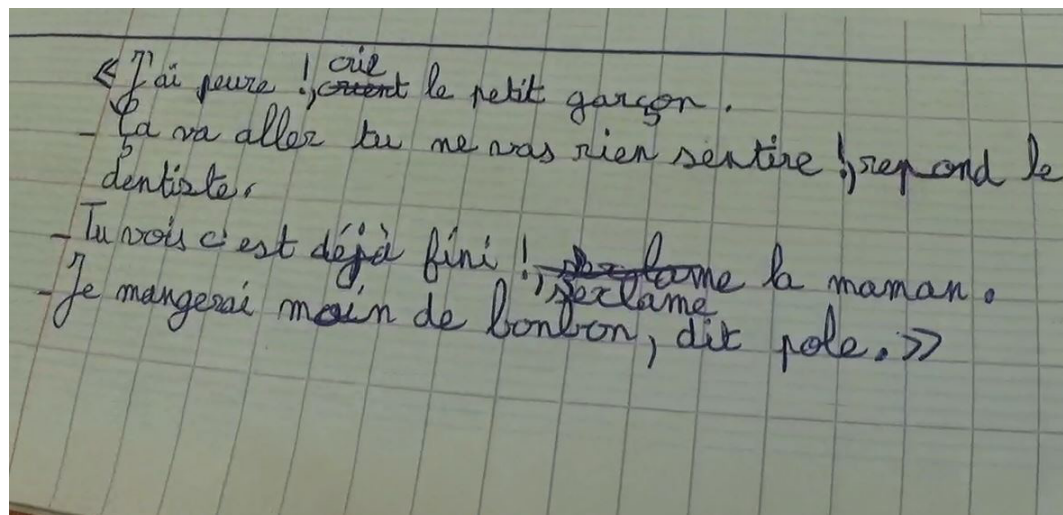 « J'ai peure !, crie le petit garçon.
- Ça va aller tu ne vas rien sentire !, repond le
dentiste.
- Tu vois c'est déjà fini !, s'exclame la maman.
- Je mangerai moin de bonbon, dit pole. »